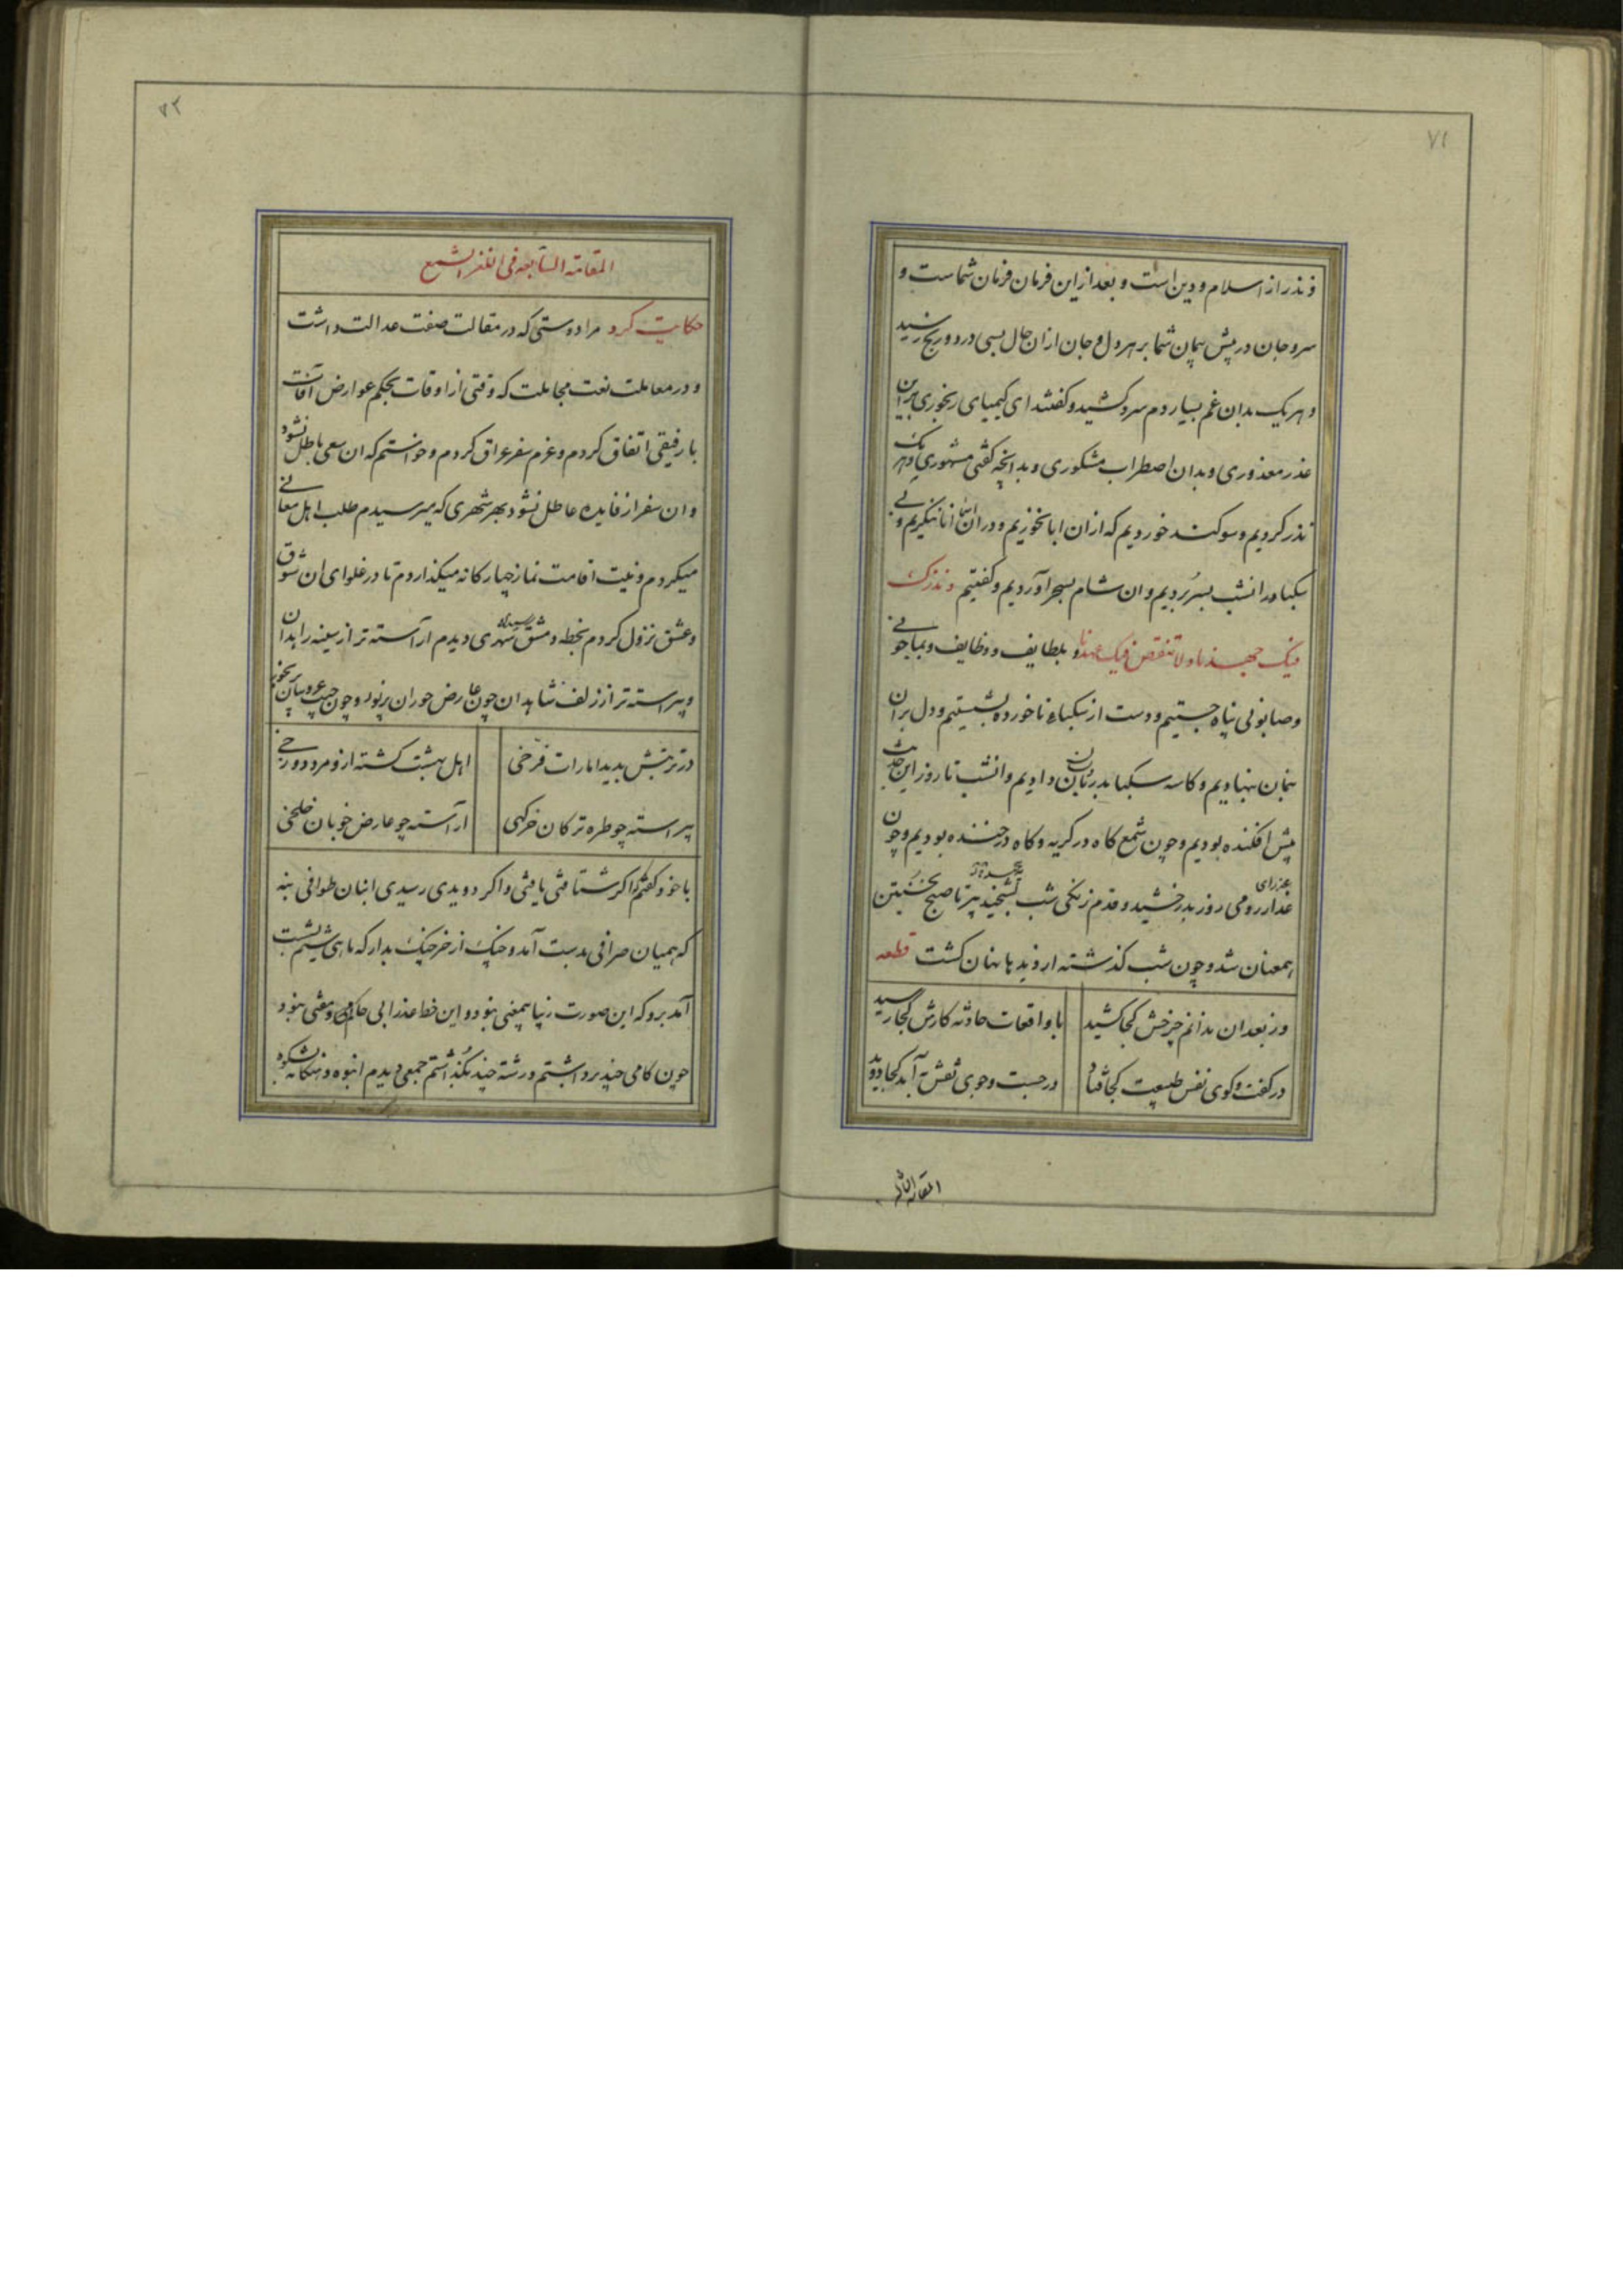 ۷۱
و نذر از اسلام و دین است و بعد از این فرمان فرمان شماست و
سر و جان در پیش پیمان شما بر هر دل و جان ازان حال بسی درد و رنج رسید
و هر یک بدان غم بسیار دم سرد کشید و گفتند ای کیمیای رنجوری بدین
عذر معذوری و بدان اضطراب مشکوری و بدانچه گفتی مشهوری و هر یک
نذر کردیم و سوکند خوردیم که ازان ابا نخوریم و دران انا ننگریم و بی
سکبا در انشب بسر بردیم و ان شام بسحر آوردیم و گفتیم و نذرک
فیک جهدنا ولا تنقض فیک عهدنا و بلطایف و وظایف و بماجو نی
و صابونی پناه جستیم و دست از سکباء ناخورده بشستیم و دل بران
بنهادیم و کاسه سکبا بدربان دادیم و انشب تا روز این حدیث
پیش افکنده بودیم و چون شمع کاه در کریه و کاه در خنده بودیم و چون
عذرای
عذار رومی روز بدرخشید و قدم زنکی شب بلخشید پیر تا صبح نخستین
همعنان شد و چون شب کذشته از دیدها نهان کشت قطعه
وز بعد ان ندانم چرخش کجا کشید
با واقعات حادثه کارش کجا رسید
در کفت و کوی نفس طبیعت کجا فتاد
در جست و جوی نقش آبد کجا دوید
۷۲
المقامة السابعه فی اللغز الشمع
حکایت کرد مرا دوستی که در مقالت صفت عدالت داشت
و در معاملت نعت مجاملت که وقتی از اوقات بحکم عوارض آفات
با رفیقی اتفاق کردم و عزم سفر عراق کردم و خواستم که ان سعی باطل نشود
و ان سفر از فایده عاطل نشود بهر شهری که میرسیدم طلب اهل معانی
میکردم و نیت اقامت نماز چهارکانه میکذاردم تا در غلوای ان شوق
و عشق نزول کردم بخطه دمشق شهری دیدم آراسته تر از سینه زاهدان
و پیراسته تر از زلف شاهدان چون عارض حوران پر نور و چون جیب عروسان
در تربتش پدید امارات فرخی
اهل بهشت کشته ازو مرد دوزخی
پیراسته چو طره ترکان خرکهی
آراسته چو عارض خوبان خلخی
با خود کفتم اکر شتافتی یافتی و اکر دویدی رسیدی انبان طوافی بنه
که همیان صرافی بدست آمد و چنک از خرچنک بدار که ماهی شیم بشست
آمد برو که این صورت زیبا بیمعنی نبود و این خط عذرا بی حاکم و مفتی نبود
چون کامی چند برداشتم و رشته چند بکذاشتم جمعی دیدم انبوه